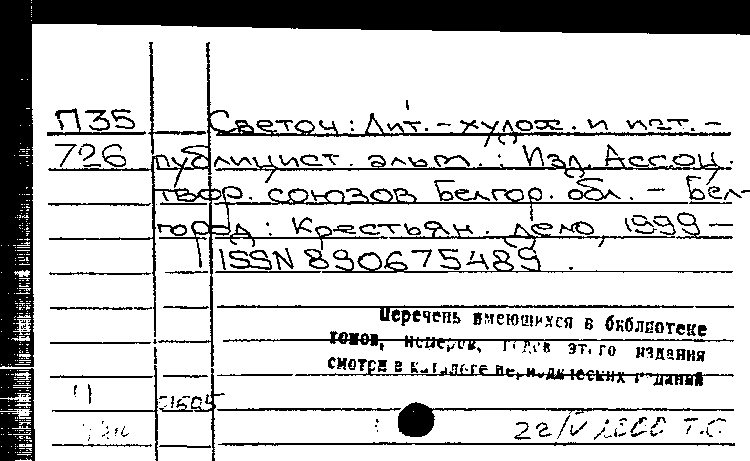 П35 Светоч: Лит.-худож. и ист.-
726 публицист. альм.: Изд. Ассоц.
твор. союзов Белгор. обл. - Бел-
город: Крестьян. дело, 1999 -
ISSN 890675489.
Перечень имеющихся в библиотеке
томов, номеров, годов этого издания
смотри в каталоге периодических изданий
Ч 01605
22/V 2000 Т.С.